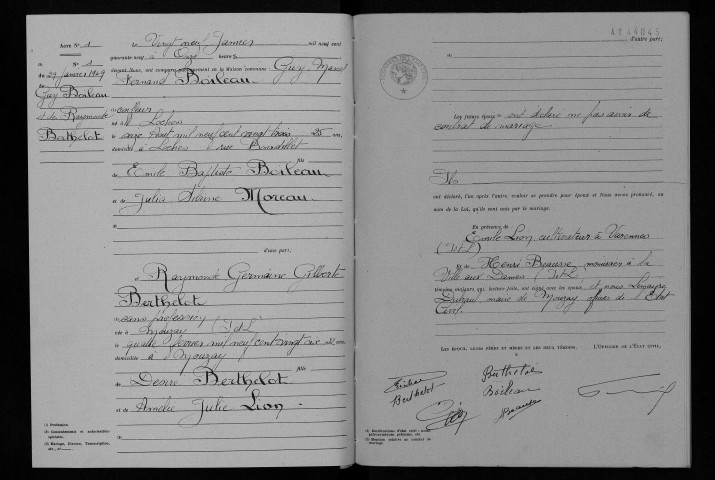 Acte N° 1
N° 1
du 29 janvier 1949
Guy Boileau
et de Raymonde
Berthelot
Le Vingt neuf Janvier mil neuf cent
quarante neuf à Onze heures
devant Nous, ont comparu publiquement en la Maison commune : Guy Marcel
Fernand Boileau
coiffeur
né à Loches
le onze Août mil neuf cent vingt trois 25 ans,
domicilié à Loches rue
fils
de Emile Baptiste Boileau
et de Julia Moreau
d'une part;
et Raymonde Germaine Gilberte
Berthelot
sans profession
née à Mouzay (I et L)
le quatre février mil neuf cent vingt six 22 ans,
domiciliée à Mouzay
fille
de Désiré Berthelot
et de Amélie Julie Lion
(1) Profession.
(2) Consentements et autorisations spéciales.
(3) Mariage, Divorce, Transcription, etc., s'
d'autre part;
(2)
Les futurs époux ont déclaré ne pas avoir de
contrat de mariage
Ils
ont déclaré, l'un après l'autre, vouloir se prendre pour époux et Nous avons prononcé, au
nom de la Loi, qu'ils sont unis par le mariage.
En présence de
Emile Lion cultivateur à Varennes
(I et L)
et de Henri Beausse à la
Ville aux Dames (I et L)
témoins majeurs qui, lecture faite, ont signé avec les époux et nous
maire de Mouzay officier de l'Etat
Civil
LES ÉPOUX, LEURS PÈRES ET MÈRES ET LES DEUX TÉMOINS,
L'OFFICIER DE L'ÉTAT CIVIL,
Berthelot
Berthelot
Boileau
Lion
Beausse